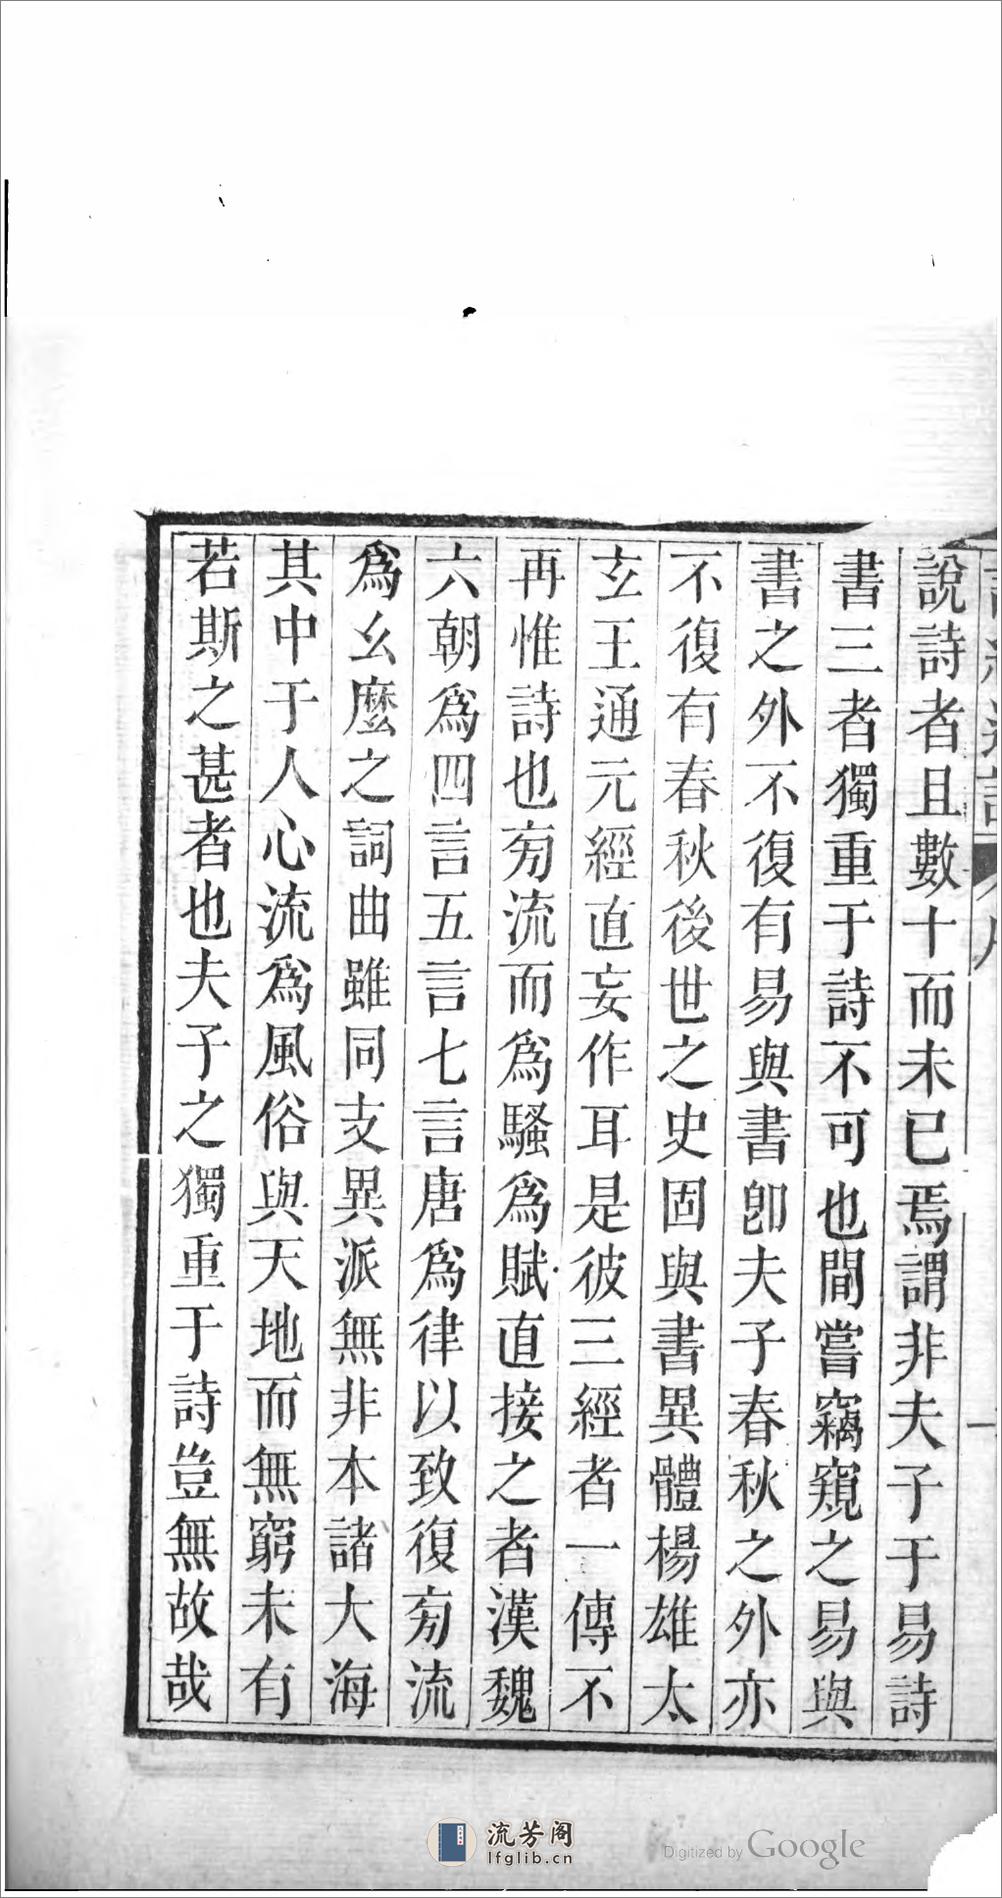 說詩者且數十而未已焉謂非夫子于易詩
書三者獨重于詩不可也間嘗竊窺之易與
書之外不復有易與書卽夫子春秋之外亦
不復有春秋後世之史固與書異體楊雄太
玄王通元經直妄作耳是彼三經者一傳不
再惟詩也旁流而爲騷爲賦直接之者漢魏
六朝爲四言五言七言唐爲律以致復旁流
爲幺麼之詞曲雖同支異派無非本諸大海
其中于人心流爲風俗與天地而無窮未有
若斯之甚者也夫子之獨重于詩豈無故哉
流芳阁
lfglib.cn
Digitized by Google